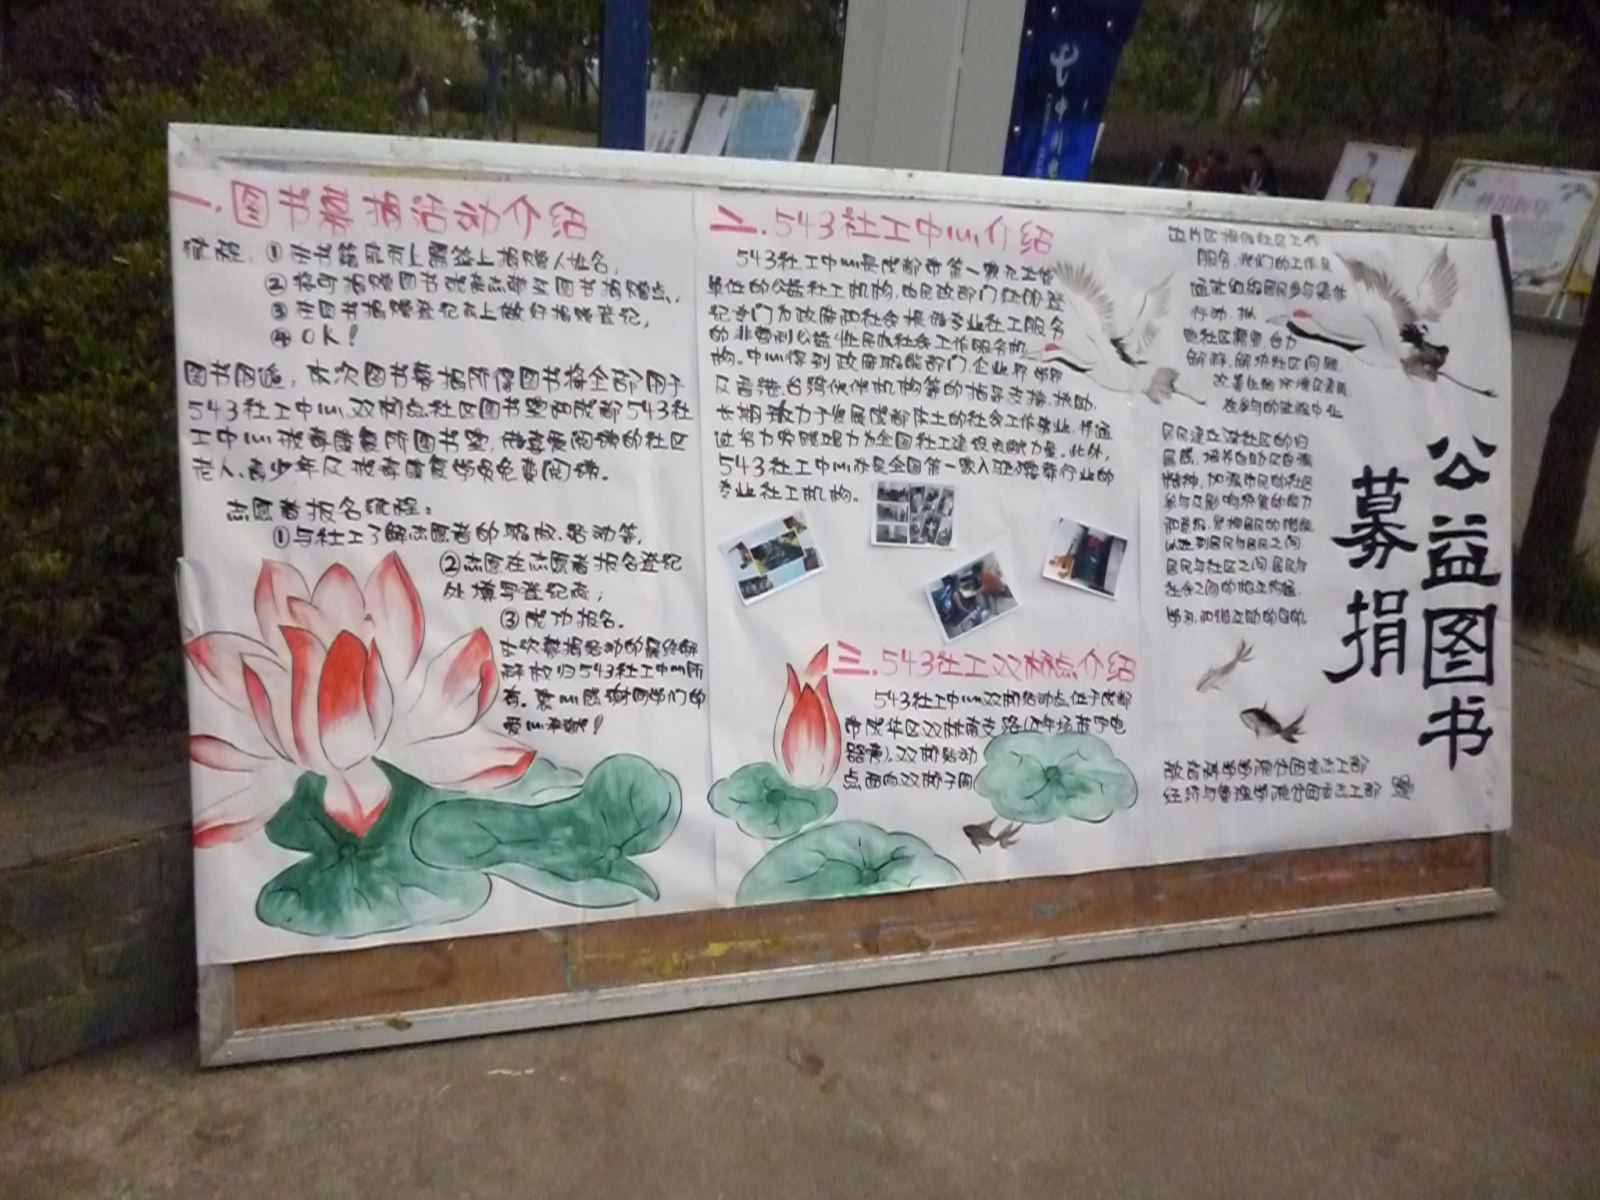 一.图书募捐活动介绍
流程:①在书籍扉页上署益上捐赠人姓名,
②将可捐赠图书或杂志带至图书捐赠点,
③在图书捐赠登记表上做好捐赠登记,
④OK!
图书用途:本次图书募捐所得图书将全部用于
543社工中心双林点社区图书室和成都543社
工中心戒毒康复所图书室,供喜爱阅读的社区
老人、青少年及戒毒康复学员免费阅读。
志愿者报名流程:
①与社工了解志愿者的职责、活动等,
②志愿在志愿者报名登记
处填写登记表;
③成功报名。
本次募捐活动的最终解
释权归543社工中心所
有。衷心感谢同学们的
爱心奉献!
二.543社工中心介绍
543社工中心是成都市第一家无主管
单位的公益社工机构,由民政部门注册登
记专门为政府和社会提供专业社工服务
的非营利公益性民办社会工作服务机
构。中心得到政府职能部门、企业界、学界
及香港、台湾伙伴机构等的指导支持、扶助,
长期致力于发展成都本土的社会工作事业,并通
过努力实践現力为全国社工建设贡献力量。此外,
543社工中心亦是全国第一家入驻殡葬行业的
专业社工机构。
三.543社工双林点介绍
543社工中心双林活动点位于成都
市成华区双林南支路(近年场苏宁电
器旁),双林活动
点面向双林子周
边片区提供社区工作
服务,我们的工作是
通过组织居民参与集体
行动,
社区需要,合力
解释、解决社区问题,
改善生活环境及素质
在参与的过程中让
居民建立对社区的归
属感,培养自助及自强
精神,加强市民的社区
参与及影响决策的能力
和意识,发挥居民的潜能,
以达到居民与居民之间,
居民与社区之间,居民与
社会之间的相互关怀、
学习、和谐互助的目的。
公益图书
募捐
教育科学学院分团委志工部
经济与管理学院分团委志工部
中国